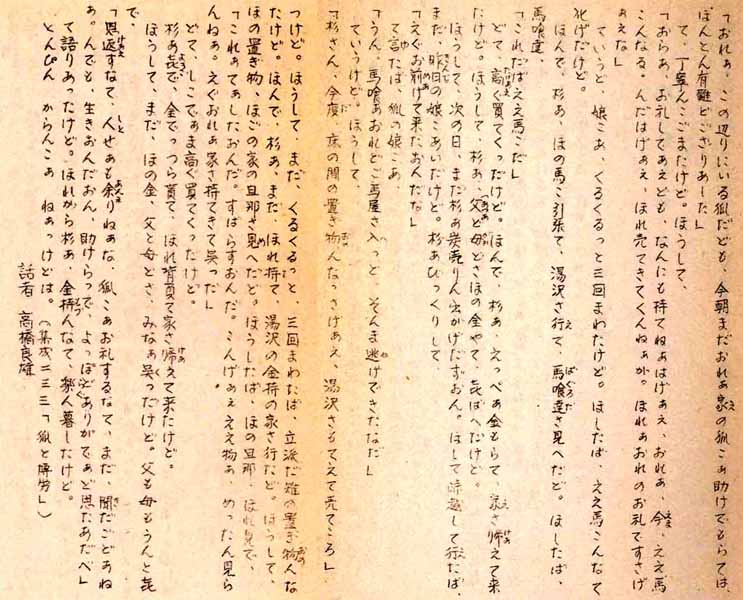 「おれぁ、この辺りにいる狐だども、今朝まだおれぁ家の狐こぁ助けでもらては、
ほんとん有難どござりあした」
て、丁寧んこごまたけど。ほうして、
「おらあ、お礼してあえども、なんにも持てねぁはげぁえ、おれぁ、今、ええ馬
こんなる。んだはげぁえ、ほれ売てきてくんねぁが。ほれぁおれのお礼ですさげ
ぁえな」
ていうど、娘こぁ、くるくるっと三回まわたけど。ほしたば、ええ馬こんなて
犯げだけど。
ほんで、杉ぁ、ほの馬こ引張て、湯沢さ行て、馬喰達さ見へだど。ほしたば、
馬喰達
「これだばええ馬こだ」
どて、高ぐ買てくっだけど。ほんで、杉ぁ、えっぺぁ金もらて、家さ帰えて来
たけど。ほうして、杉ぁ、父ど母どさほの金やて、㐂ばへだけど。
ほうして、次の日、また杉ぁ炭売りん出がげたずおん。ほして峠越して行たば、
まだ、昨日の娘こあいだけど。杉ぁびっくりして、
「えぐお前げて来たおんだな」
て言たば、狐の娘こぁ、
「うん、馬喰ぁおれどご馬屋さ入っど、そんま逃げできたなだ」
ていうけど。ほうして、
「杉さん、今度、床の間の置き物んなっさげぁえ、湯沢さもてえて売てころ」
っけど。ほうして、まだ、くるくるっと、三回まわたば、立派だ雄の置き物んな
たけど。ほんで、杉ぁ、まだ、ほれ持て、湯沢の金持の家さ行たど。ほうして、
ほの置き物、ほごの家の旦那さ見へだど。ほうしたば、ほの旦那、ほれ見で、
「これぁてぁしたおんだ。すばらすおんだ。こんげぁえ ええ物ぁ、めったん見ら
んねぁ。えぐおれぁ家さ持てきて呉っだ」
どて、しこでぁま高ぐ買てくっだけど。
杉ぁ㐂で、金でっつら貰て、ほれ背負て家さ帰えて来たけど。
ほうして、まだ、ほの金、父と母どさ、みなぁ呉っだけど。父も母もうんと㐂
で、
「恩返すなて、人せぁも余りねぁな、狐こぁお礼するなて、まだ、聞だごどあね
ぁ。んでも、生きおんだおん、助けらっで、よっぽどありがてぁど思たあだべ」
て語りあたけど。ほれから杉ぁ、金持んなて、楽ん暮したけど。
とんぴん からんこぁ ねぁっけどは。（集成二三三「狐と博労」）
話者 高橋良雄